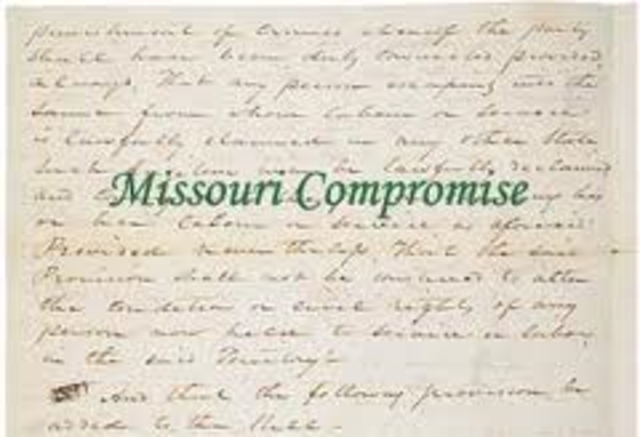 punishment of crimes whereof the party
shall have been duly convicted provided
always, That any person escaping into the
same from whom labour or service
is lawfully claimed in any other State
such fugitive may be lawfully reclaimed
and
Missouri Compromise
or her labour or service as aforesaid:
Provided nevertheless, That the said
Provision shall not be construed to alter
the condition or civil rights of any
person now held to service or labor
in the said Territory
And that the following provision be
added to the Bill.